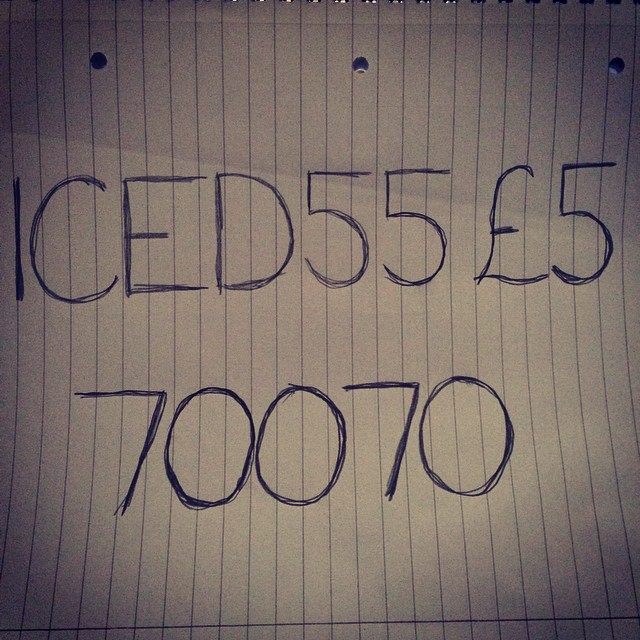 ICED55 £5
70070